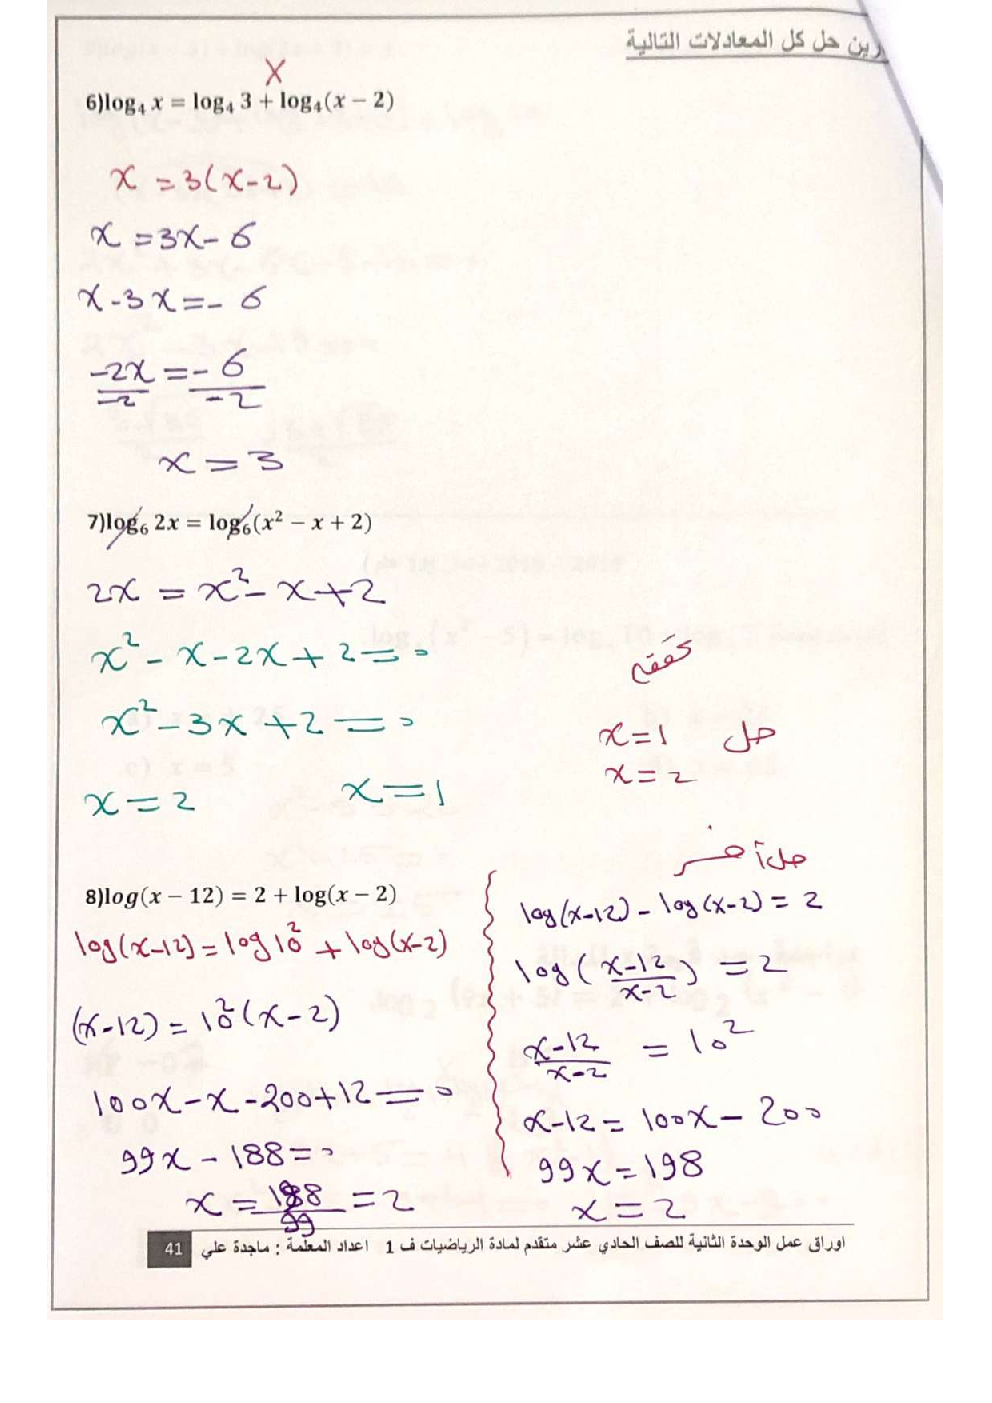 رين حل كل المعادلات التالية
X
6)log₄ x = log₄ 3 + log₄(x − 2)
x = 3(x-2)
x = 3x - 6
x - 3x = - 6
-2x/-2 = -6/-2
x = 3
7)log₆ 2x = log₆(x² − x + 2)
2x = x² - x + 2
x² - x - 2x + 2 = 0
x² - 3x + 2 = 0
x = 2 x = 1
x = 1 حل
x = 2
8)log(x − 12) = 2 + log(x − 2)
log(x-12) = log 10² + log(x-2)
(x-12) = 10²(x-2)
100x - x - 200 + 12 = 0
99x - 188 = 0
x = 188/99 = 2
حل آخر
log(x-12) - log(x-2) = 2
log(x-12/x-2) = 2
x-12/x-2 = 10²
x-12 = 100x - 200
99x = 198
x = 2
اوراق عمل الوحدة الثانية للصف الحادي عشر متقدم لمادة الرياضيات ف 1 اعداد المعلمة : ماجدة علي 41